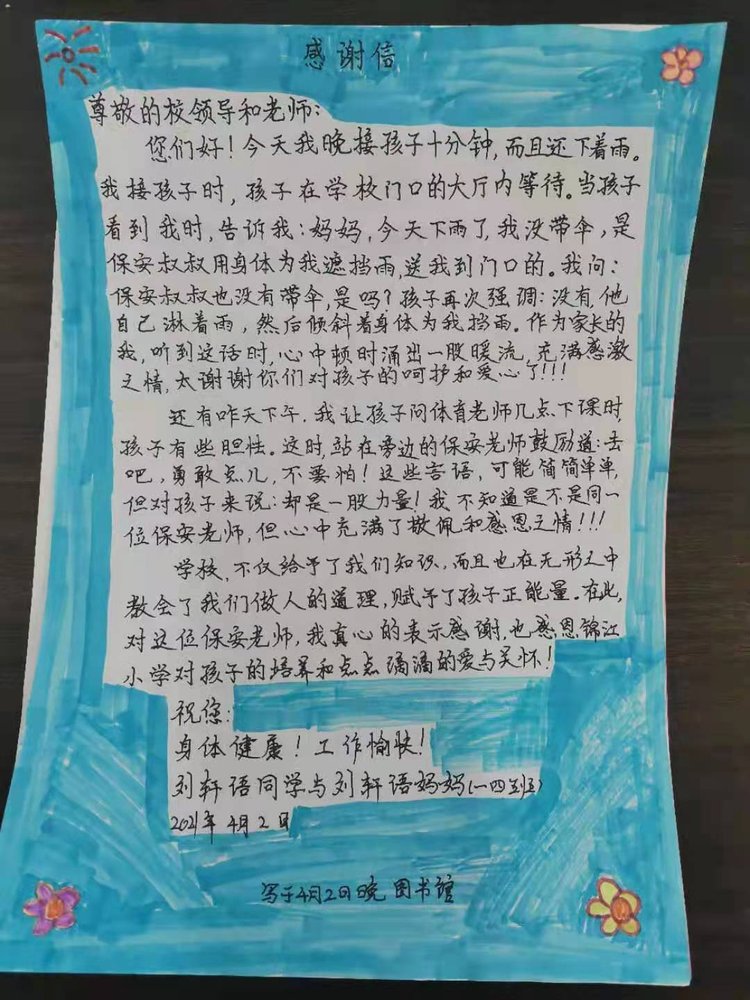 感谢信
尊敬的校领导和老师：
您们好！今天我晚接孩子十分钟，而且还下着雨。
我接孩子时，孩子在学校门口的大厅内等待。当孩子
看到我时，告诉我：妈妈，今天下雨了，我没带伞，是
保安叔叔用身体为我遮挡雨，送我到门口的。我问：
保安叔叔也没有带伞，是吗？孩子再次强调：没有，他
自己淋着雨，然后倾斜着身体为我挡雨。作为家长的
我，听到这话时，心中顿时涌出一股暖流，充满感激
之情，太谢谢你们对孩子的呵护和爱心了！！！
还有昨天下午，我让孩子问体育老师几点下课时，
孩子有些胆怯。这时，站在旁边的保安老师鼓励道：去
吧，勇敢点儿，不要怕！这些言语，可能简简单单，
但对孩子来说：却是一股力量！我不知道是不是同一
位保安老师，但心中充满了敬佩和感恩之情！！！
学校，不仅给予了我们知识，而且也在无形之中
教会了我们做人的道理，赋予了孩子正能量。在此，
对这位保安老师，我真心的表示感谢，也感恩锦江
小学对孩子的培养和点点滴滴的爱与关怀！
祝您：
身体健康！工作愉快！
刘轩语同学与刘轩语妈妈(一四班)
2021年4月2日
写于4月2日晚 图书馆